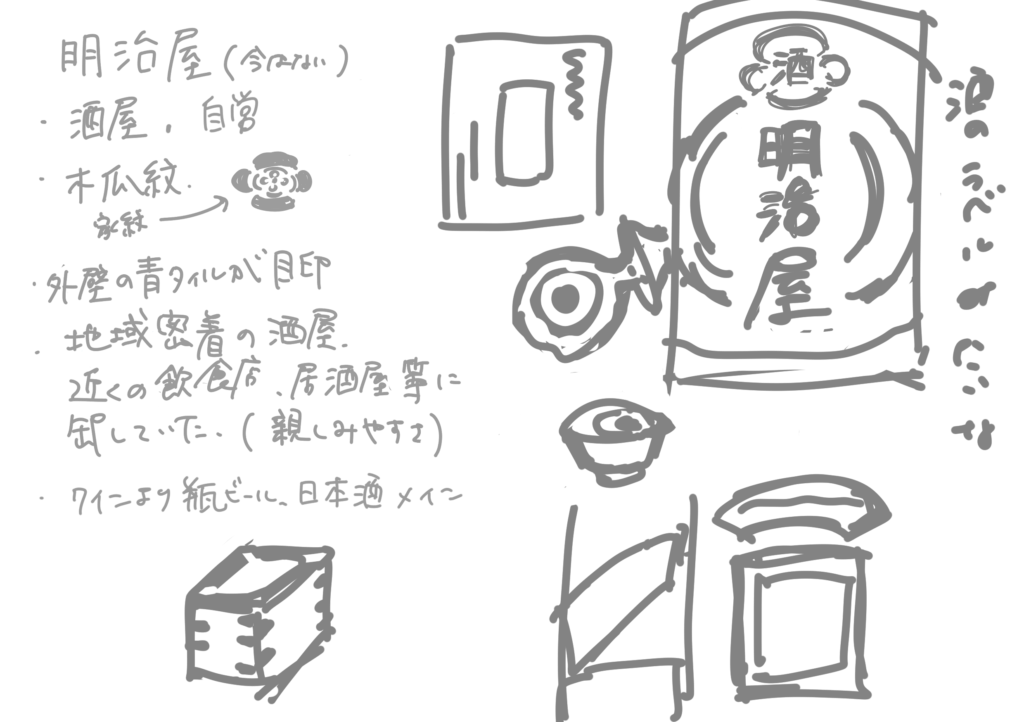 明治屋(今はない)
・酒屋. 自営
・木瓜紋.
家紋
・外壁の青タイルが目印
・地域密着の酒屋.
近くの飲食店、居酒屋等に
卸していた.(親しみやすさ)
・ワインより瓶ビール、日本酒メイン
酒
明治屋
酒のラベルはいいな